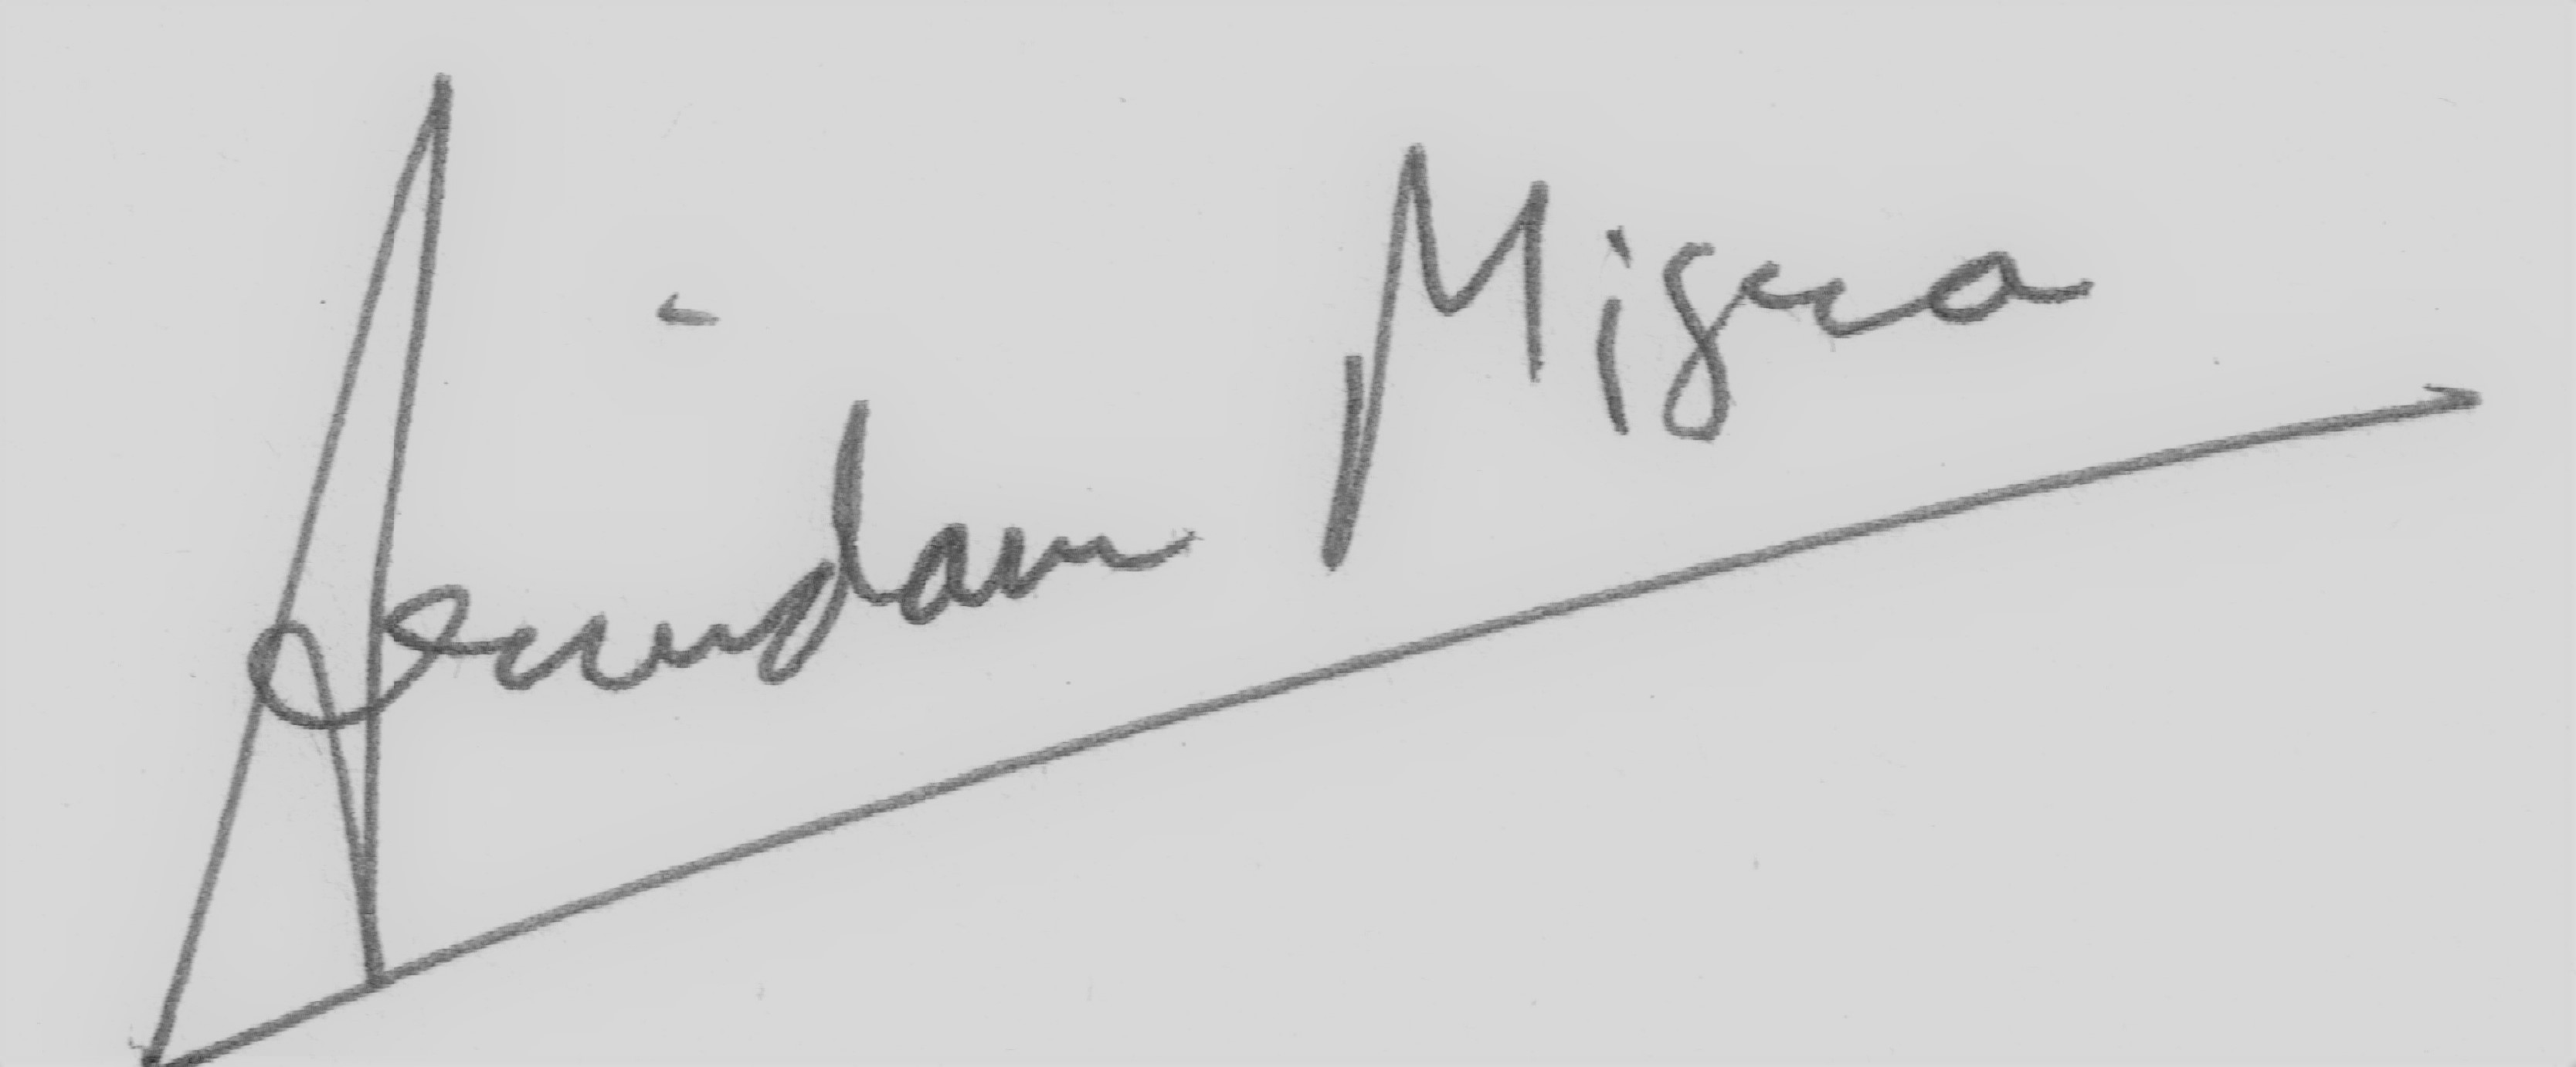 Arindam Misra